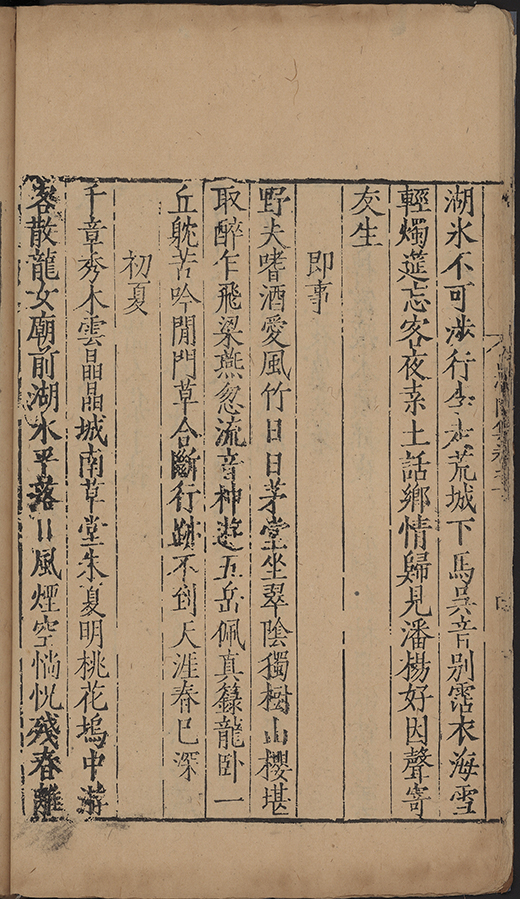 湖氷不可渉行李走荒城下馬吳音別霑衣海雪
輕燭莚忘客夜素土話鄉情歸見潘楊好因聲寄
友生
即事
野夫嗜酒愛風竹日日茅堂坐翠陰獨樹山櫻堪
取醉乍飛梁燕忽流音神遊五岳佩真籙龍卧一
丘躭苦吟閒門草合斷行跡不到天涯春已深
初夏
千章秀木雲晶晶城南草堂朱夏明桃花塢中游
客散龍女廟前湖水平落日風煙空惝怳殘春離